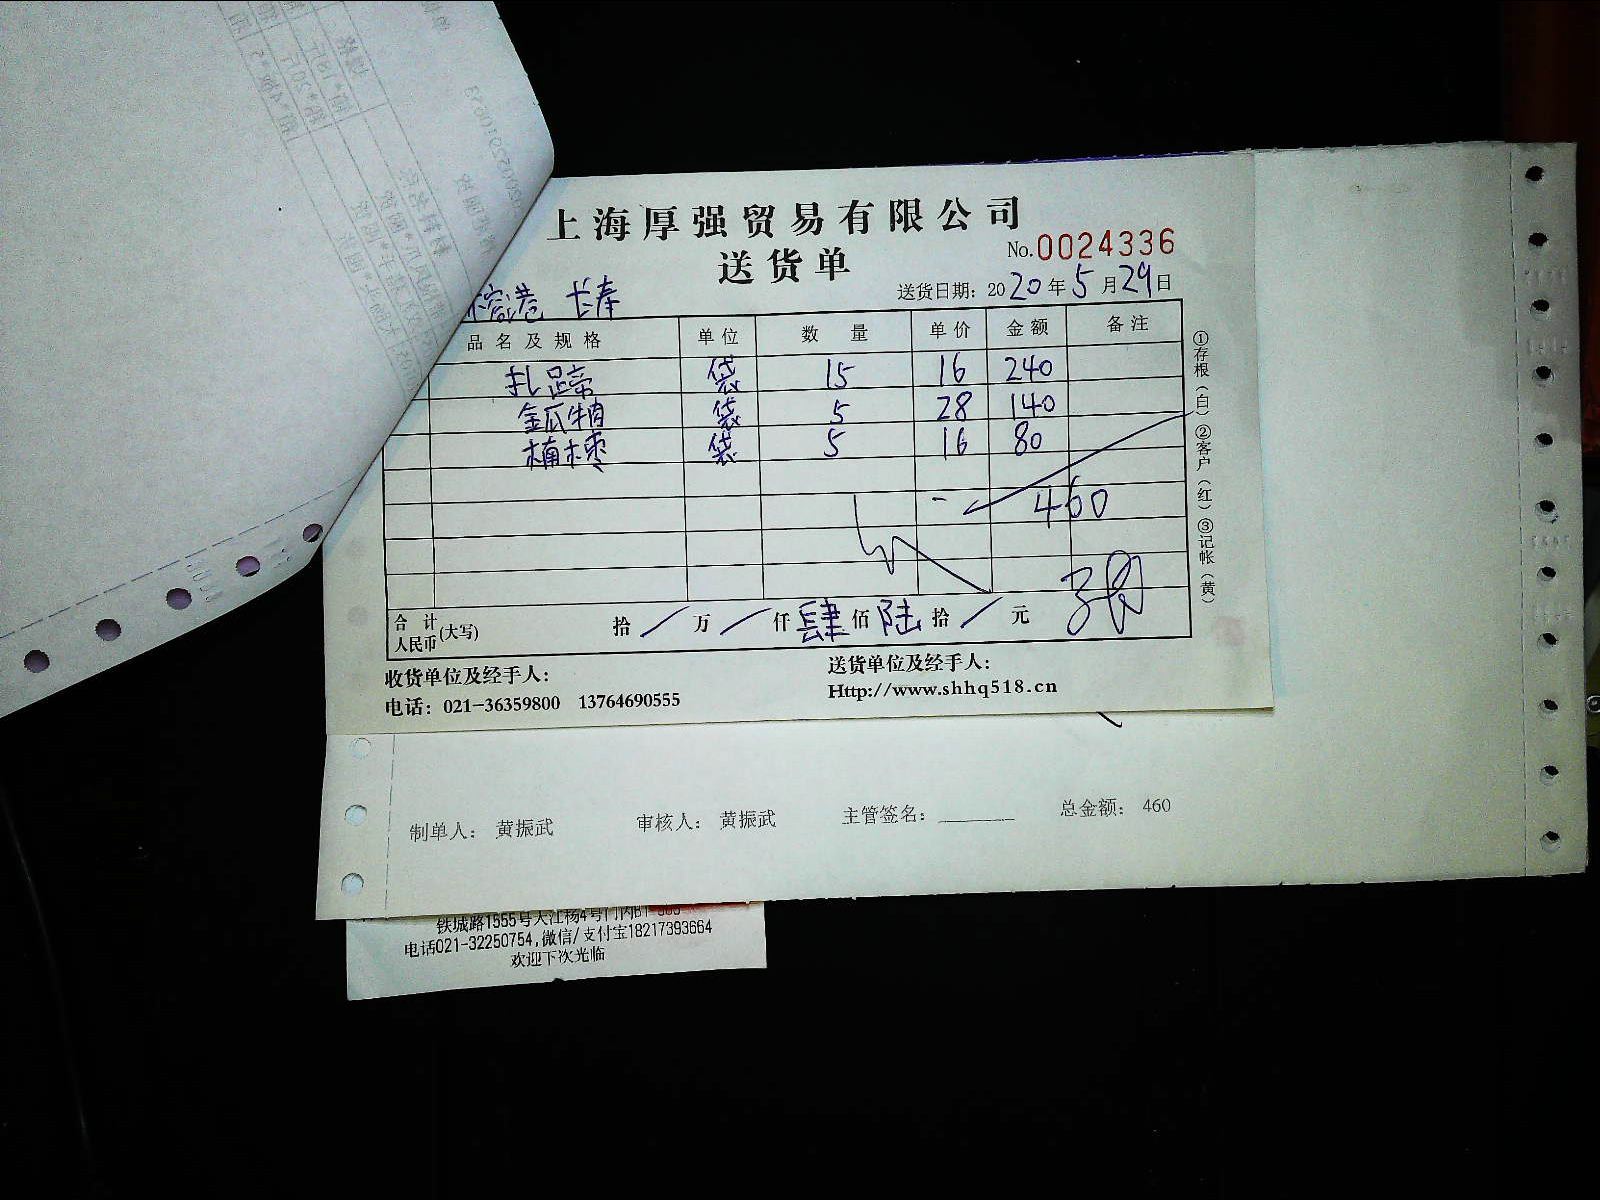 上海厚强贸易有限公司
送货单
No.0024336
榕港 长奉
送货日期：2020年5月29日
品名及规格 单位 数量 单价 金额 备注
扎蹄 袋 15 16 240
金瓜 袋 5 28 140
袋 5 16 80
460
合计人民币(大写) 拾/万/仟肆佰陆拾/元
①存根(白)②客户(红)③记帐(黄)
收货单位及经手人：
送货单位及经手人：
电话：021-36359800 13764690555
Http://www.shhq518.cn
制单人： 黄振武 审核人： 黄振武 主管签名：________ 总金额： 460
铁城路1555号大江杨4号门内B1-
电话021-32250754,微信/支付宝18217393664
欢迎下次光临